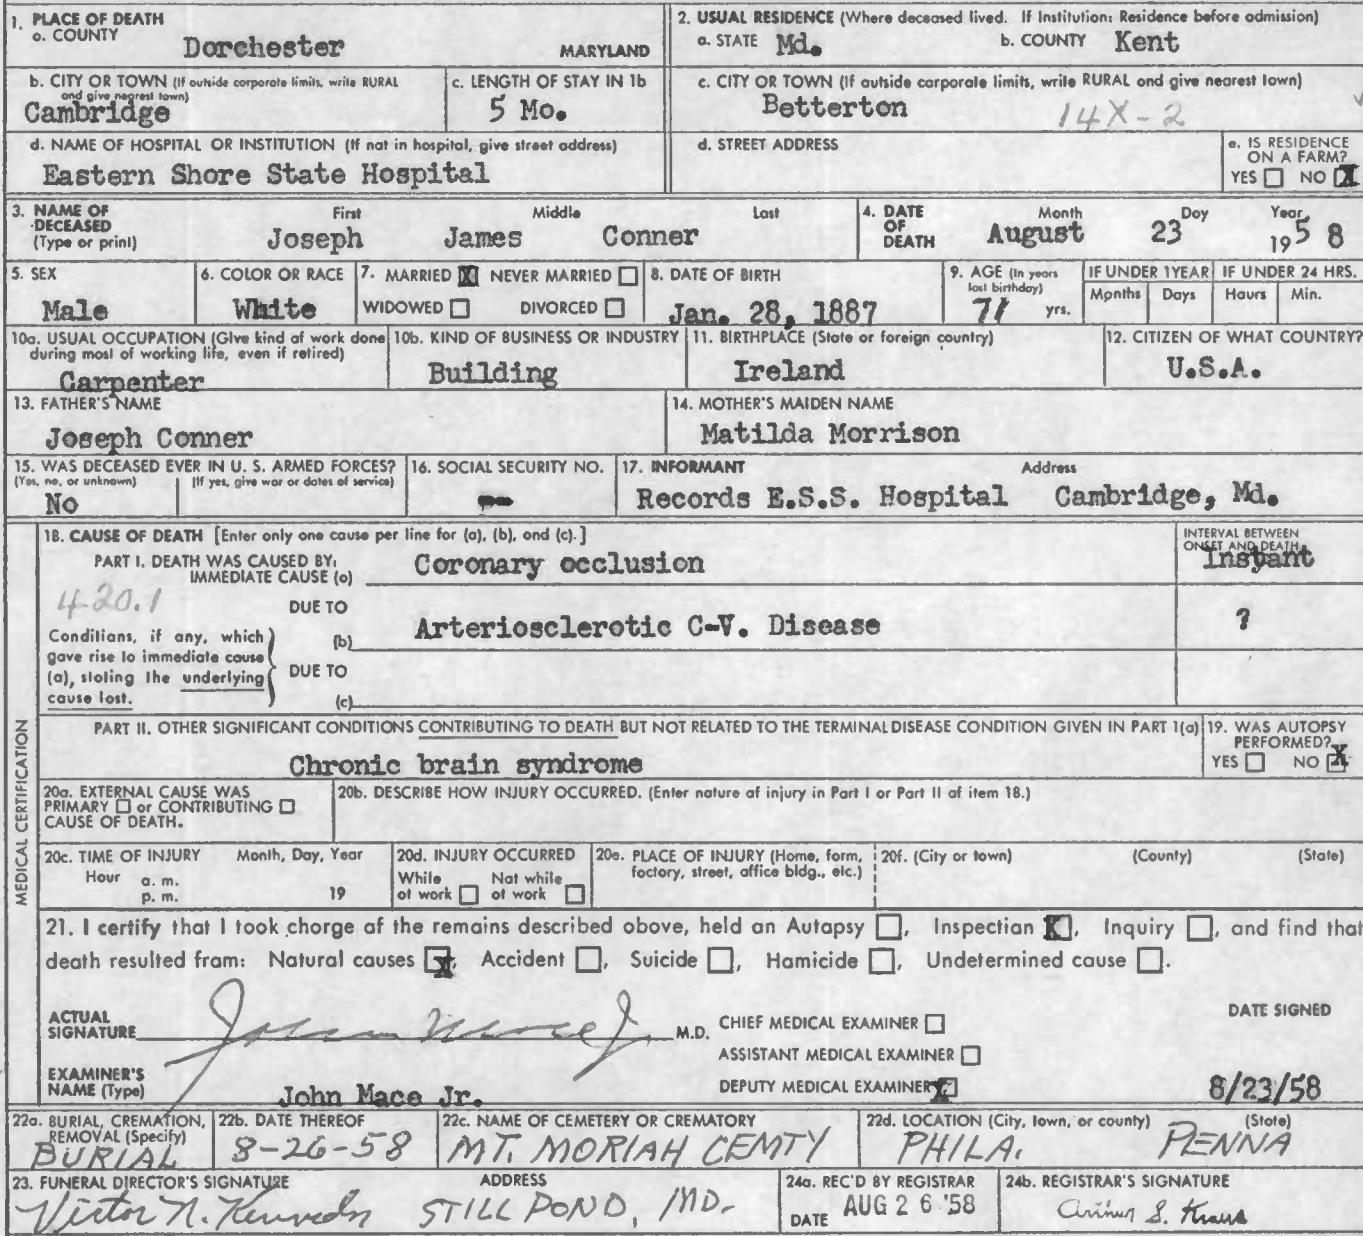 1. PLACE OF DEATH
a. COUNTY
Dorchester MARYLAND
2. USUAL RESIDENCE (Where deceased lived. If Institution: Residence before admission)
a. STATE Md. b. COUNTY Kent
b. CITY OR TOWN (If outside corporate limits, write RURAL and give nearest town)
Cambridge
c. LENGTH OF STAY IN 1b
5 Mo.
c. CITY OR TOWN (If outside corporate limits, write RURAL and give nearest town)
Betterton 14X-2
d. NAME OF HOSPITAL OR INSTITUTION (If not in hospital, give street address)
Eastern Shore State Hospital
d. STREET ADDRESS
e. IS RESIDENCE ON A FARM?
YES ☐ NO ☒
3. NAME OF DECEASED (Type or print)
First Middle Last
Joseph James Conner
4. DATE OF DEATH
Month Day Year
August 23 1958
5. SEX
Male
6. COLOR OR RACE
White
7. MARRIED ☒ NEVER MARRIED ☐
WIDOWED ☐ DIVORCED ☐
8. DATE OF BIRTH
Jan. 28, 1887
9. AGE (In years last birthday)
71 yrs.
IF UNDER 1 YEAR
Months Days
IF UNDER 24 HRS.
Hours Min.
10a. USUAL OCCUPATION (Give kind of work done during most of working life, even if retired)
Carpenter
10b. KIND OF BUSINESS OR INDUSTRY
Building
11. BIRTHPLACE (State or foreign country)
Ireland
12. CITIZEN OF WHAT COUNTRY?
U.S.A.
13. FATHER'S NAME
Joseph Conner
14. MOTHER'S MAIDEN NAME
Matilda Morrison
15. WAS DECEASED EVER IN U. S. ARMED FORCES?
(Yes, no, or unknown) (If yes, give war or dates of service)
No
16. SOCIAL SECURITY NO.
-
17. INFORMANT Address
Records E.S.S. Hospital Cambridge, Md.
MEDICAL CERTIFICATION
18. CAUSE OF DEATH [Enter only one cause per line for (a), (b), and (c).]
INTERVAL BETWEEN ONSET AND DEATH
PART I. DEATH WAS CAUSED BY:
IMMEDIATE CAUSE (a) Coronary occlusion Instant
420.1
DUE TO
(b) Arteriosclerotic C-V. Disease ?
Conditions, if any, which gave rise to immediate cause (a), stating the underlying cause last.
DUE TO
(c)
PART II. OTHER SIGNIFICANT CONDITIONS CONTRIBUTING TO DEATH BUT NOT RELATED TO THE TERMINAL DISEASE CONDITION GIVEN IN PART I(a)
Chronic brain syndrome
19. WAS AUTOPSY PERFORMED?
YES ☐ NO ☒
20a. EXTERNAL CAUSE WAS
PRIMARY ☐ or CONTRIBUTING ☐
CAUSE OF DEATH.
20b. DESCRIBE HOW INJURY OCCURRED. (Enter nature of injury in Part I or Part II of item 18.)
20c. TIME OF INJURY Month, Day, Year
Hour a. m.
p. m. 19
20d. INJURY OCCURRED
While at work ☐ Not while at work ☐
20e. PLACE OF INJURY (Home, farm, factory, street, office bldg., etc.)
20f. (City or town) (County) (State)
21. I certify that I took charge of the remains described above, held an Autopsy ☐, Inspection ☒, Inquiry ☐, and find that
death resulted from: Natural causes ☒, Accident ☐, Suicide ☐, Homicide ☐, Undetermined cause ☐.
ACTUAL SIGNATURE John Mace Jr. M.D.
CHIEF MEDICAL EXAMINER ☐
ASSISTANT MEDICAL EXAMINER ☐
DEPUTY MEDICAL EXAMINER ☒
DATE SIGNED
8/23/58
EXAMINER'S NAME (Type) John Mace Jr.
22a. BURIAL, CREMATION, REMOVAL (Specify)
BURIAL
22b. DATE THEREOF
8-26-58
22c. NAME OF CEMETERY OR CREMATORY
MT. MORIAH CEMTY
22d. LOCATION (City, town, or county) (State)
PHILA. PENNA
23. FUNERAL DIRECTOR'S SIGNATURE ADDRESS
Victor N. Kennedy STILL POND, MD.
24a. REC'D BY REGISTRAR
DATE AUG 26 '58
24b. REGISTRAR'S SIGNATURE
Arthur S. Kraus